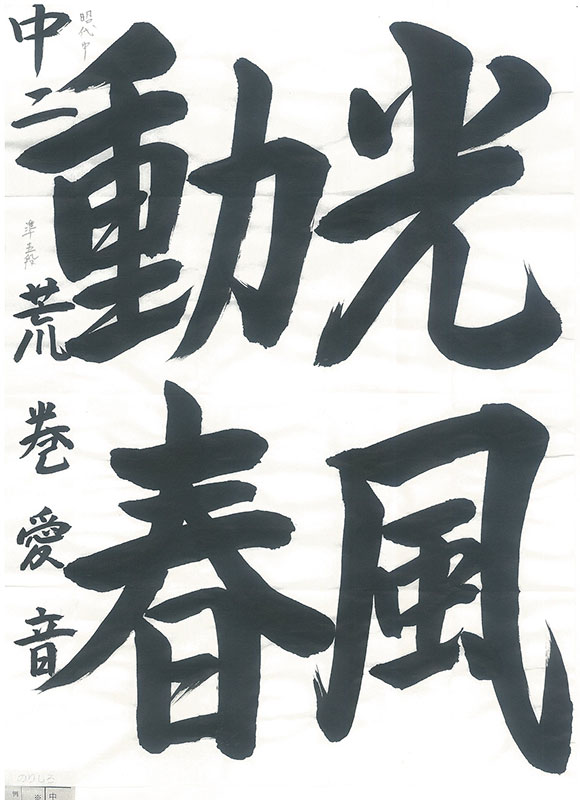 光風
動春
中二 荒巻愛音
昭代中
準五段
のりしろ
中